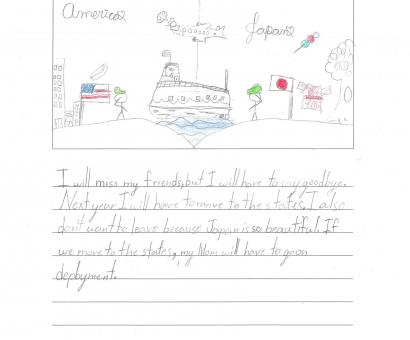 America
Japan
I will miss my friends, but I will have to say goodbye.
Next year I will have to move to the states. I also
don't want to leave because Japan is so beautiful. If
we move to the states, my Mom will have to go on
deployment.